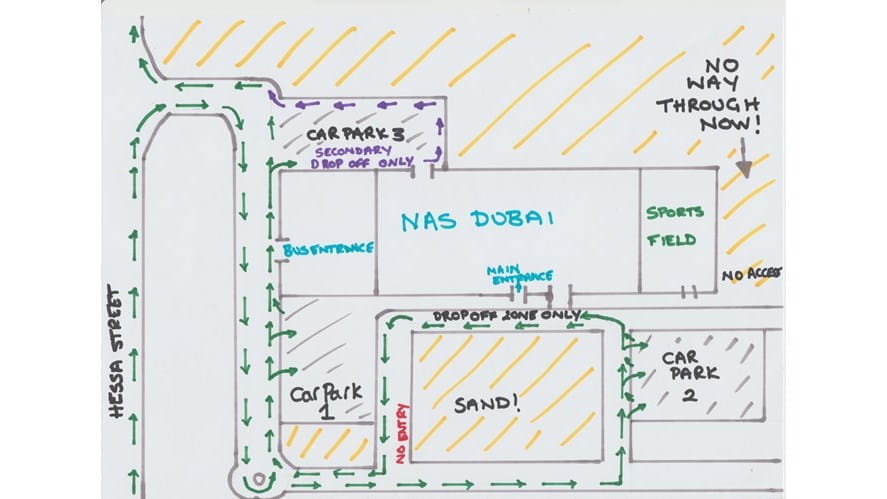 NO
WAY
THROUGH
NOW!
CAR PARK 3
SECONDARY
DROP OFF ONLY
NAS DUBAI
SPORTS
FIELD
BUS ENTRANCE
MAIN
ENTRANCE
NO ACCESS
HESSA STREET
DROP OFF ZONE ONLY
CAR
PARK
2
Car Park
1
SAND!
NO ENTRY